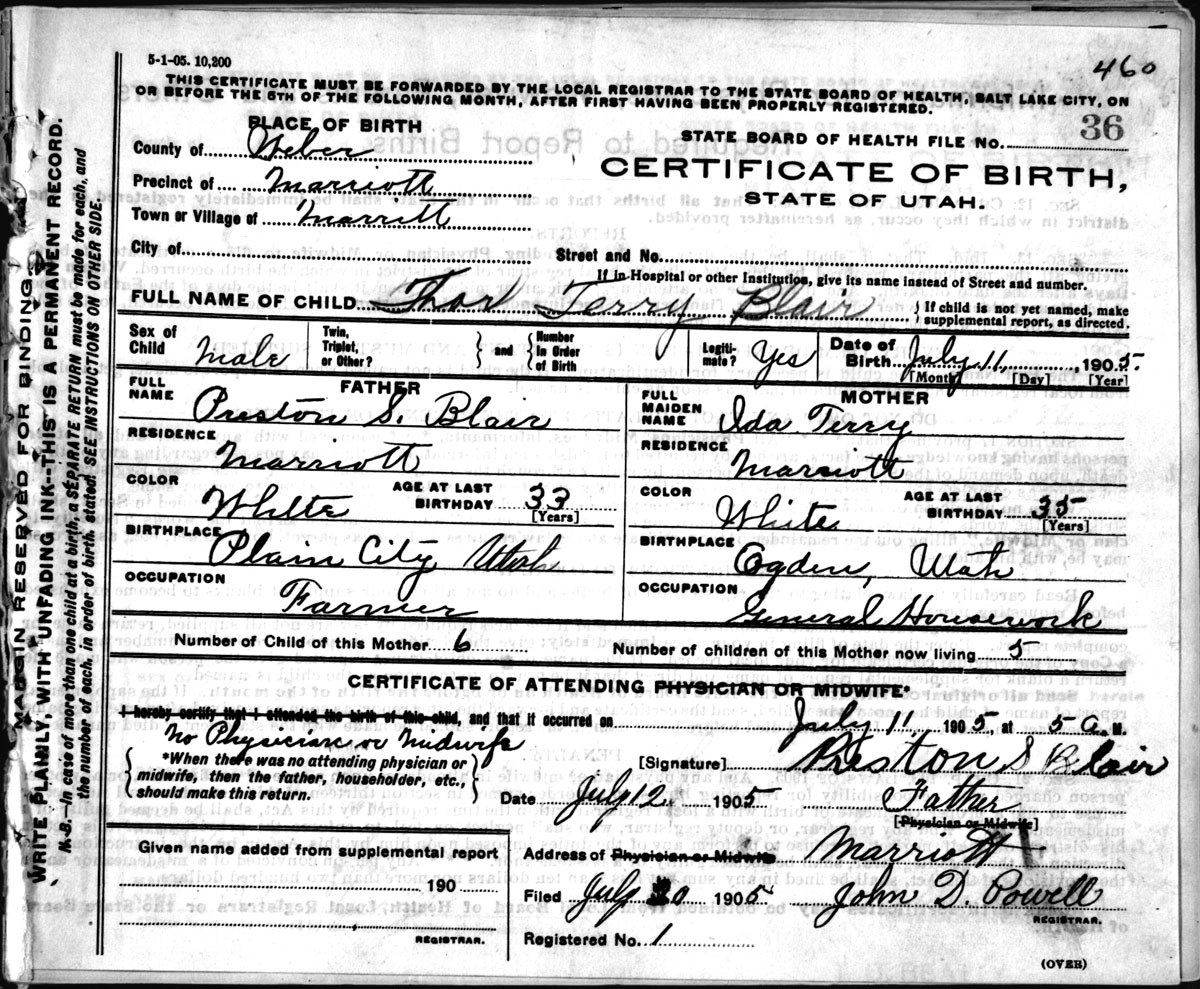 5-1-05. 10,200
460
THIS CERTIFICATE MUST BE FORWARDED BY THE LOCAL REGISTRAR TO THE STATE BOARD OF HEALTH, SALT LAKE CITY, ON
OR BEFORE THE 5TH OF THE FOLLOWING MONTH, AFTER FIRST HAVING BEEN PROPERLY REGISTERED.
PLACE OF BIRTH
County of Weber
Precinct of Marriott
Town or Village of Marritt
City of
STATE BOARD OF HEALTH FILE NO. 36
CERTIFICATE OF BIRTH,
STATE OF UTAH.
Street and No.
If in Hospital or other Institution, give its name instead of Street and number.
FULL NAME OF CHILD Thorl Terry Blair { If child is not yet named, make
supplemental report, as directed.
Sex of
Child Male
Twin,
Triplet,
or Other?
} and {
Number
in Order
of Birth
Legiti-
mate? Yes
Date of
Birth July 11, 1905
[Month] [Day] [Year]
FATHER
FULL
NAME Preston S. Blair
RESIDENCE
Marriott
COLOR
White
AGE AT LAST
BIRTHDAY 33
[Years]
BIRTHPLACE
Plain City Utah
OCCUPATION
Farmer
MOTHER
FULL
MAIDEN
NAME Ida Terry
RESIDENCE
Marriott
COLOR
White
AGE AT LAST
BIRTHDAY 35
[Years]
BIRTHPLACE
Ogden, Utah
OCCUPATION
General Housework
Number of Child of this Mother 6
Number of children of this Mother now living 5
CERTIFICATE OF ATTENDING PHYSICIAN OR MIDWIFE*
I hereby certify that I attended the birth of this child, and that it occurred on July 11, 1905, at 5 a. M.
No Physician or Midwife
{ *When there was no attending physician or
midwife, then the father, householder, etc.,
should make this return. }
[Signature] Preston S Blair
Date July 12 1905 Father
[Physician or Midwife]
Given name added from supplemental report
190
REGISTRAR.
Address of Physician or Midwife Marriott
Filed July 20 1905 John D. Powell
REGISTRAR.
Registered No. 1
(OVER)
MARGIN RESERVED FOR BINDING
WRITE PLAINLY, WITH UNFADING INK--THIS IS A PERMANENT RECORD.
N. B.—In case of more than one child at a birth, a SEPARATE RETURN must be made for each, and
the number of each, in order of birth, stated. SEE INSTRUCTIONS ON OTHER SIDE.